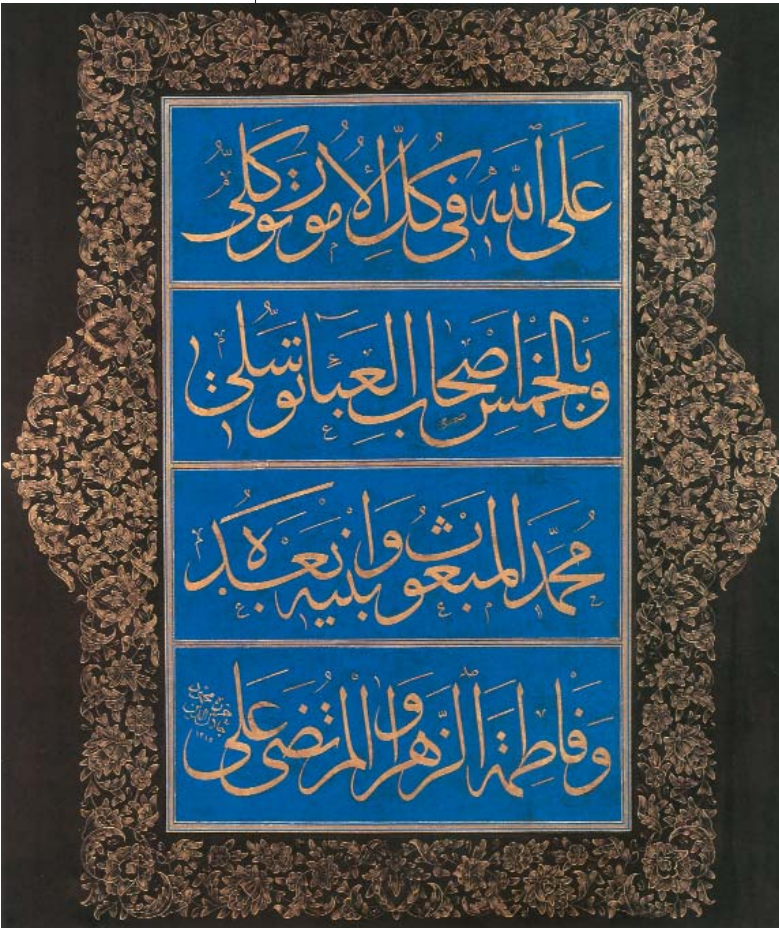 عَلَى اللّٰهِ فِى كُلِّ الْأُمُورِ تَوَكُّلِى
وَبِالْخَمْسِ اَصْحَابِ الْعَبَاءِ تَوَسُّلِى
مُحَمَّدِ الْمَبْعُوثِ وَابْنَيْهِ بَعْدَهُ
وَفَاطِمَةِ الزَّهْرَا وَالْمُرْتَضَى عَلِى